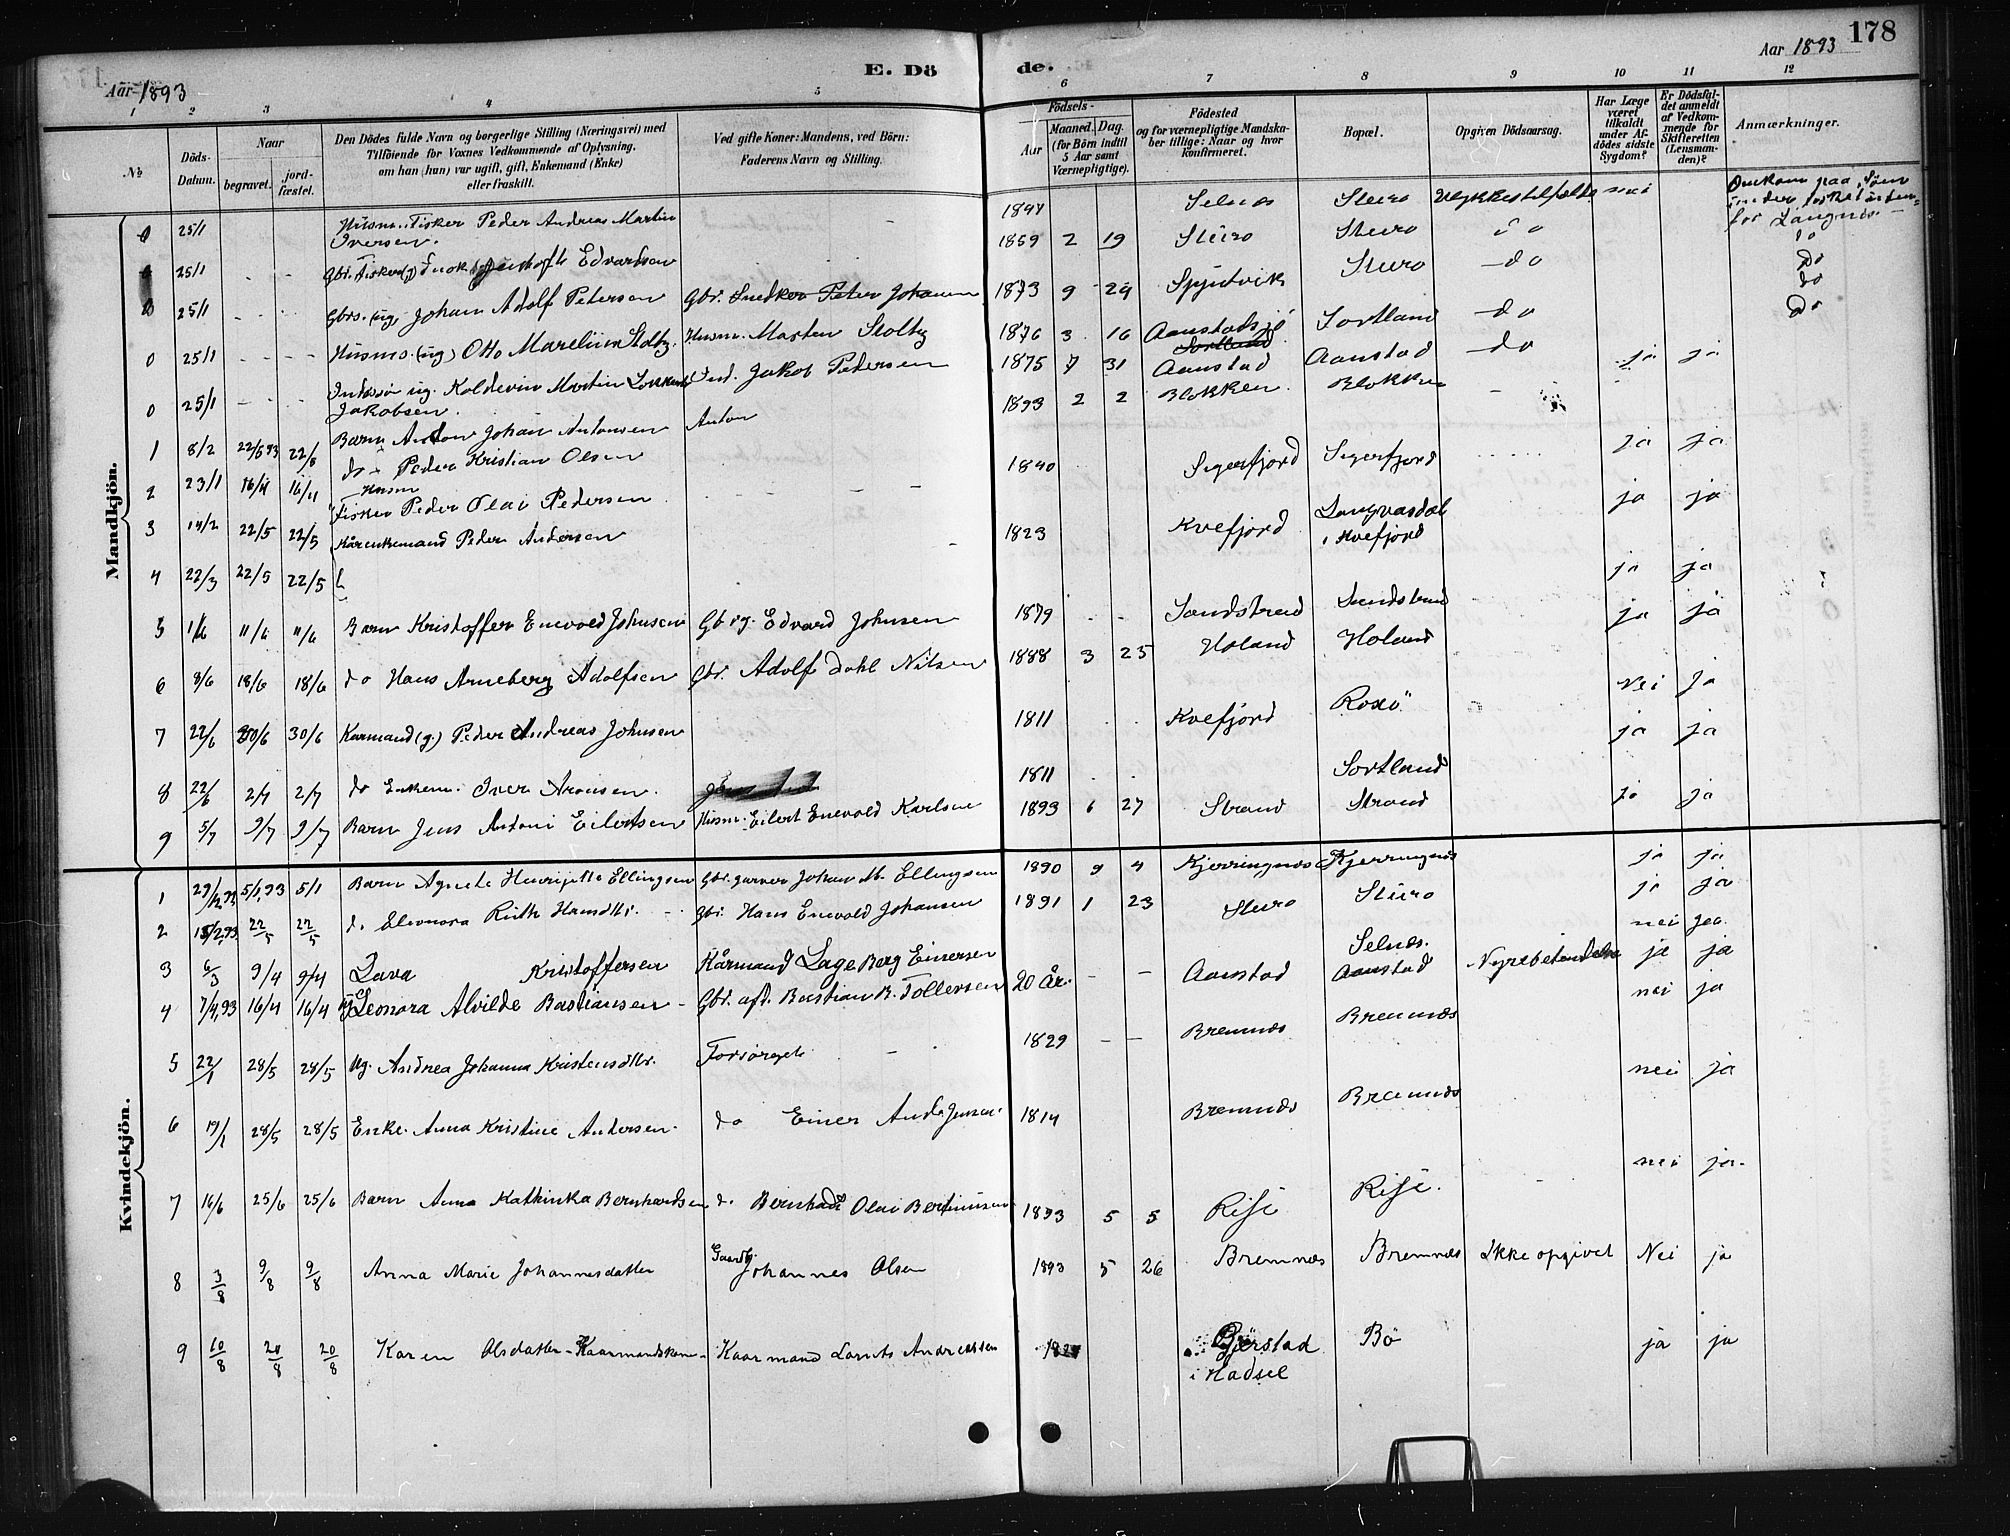 178
Aar 1893
E. Dö
de.
Aar 1893
1 2 3 4 5 6 7 8 9 10 11 12
№
Döds-Datum.
Naar
begravet.
jord-fæstet.
Den Dödes fulde Navn og borgerlige Stilling (Næringsvei) med
Tilföiende for Voxnes Vedkommende af Oplysning,
om han (hun) var ugift, gift, Enkemand (Enke)
eller fraskilt.
Ved gifte Koner: Mandens, ved Börn:
Faderens Navn og Stilling.
Födsels-
Aar
Maaned.
Dag.
(for Börn indtil
5 Aar samt
Værnepligtige).
Födested
og for værnepligtige Mandska-
ber tillige: Naar og hvor
konfirmeret.
Bopæl.
Opgiven Dödsaarsag.
Har Læge
været
tilkaldt
under Af-
dödes sidste
Sygdom?
Er Dödsfal-
det anmeldt
af Vedkom-
mende for
Skifteretten
(Lensman-
den)?
Anmærkninger.
Mandkjön.
0 25/1 Husm. Fisker Peder Andreas Martin Iversen. Selnæs Steiro Ulykkestilfælde nei Omkom paa Söen under for Langnes
25/1 Edvardsen 1859 2 19 Steiro Steiro do do
0 25/1 Gbrs. (ug) Johan Adolf Petersen Gbr. Snedker Peter Johansen 1873 9 29 Spjutvik Steiro do do
0 25/1 Husms. (ug) Otto Marelius Stoltz. Husm. Marten Stoltz 1876 3 16 Aanstadsjö Sortland do do
0 25/1 ug. Koldevin Martin Jakobsen. Ind. Jakob Pedersen 1875 7 31 Aanstad Aanstad do do
1 8/2 22/5 93 22/5 Barn Anton Johan Antonsen Anton 1893 2 2 Blokken Blokken ja ja
2 23/1 16/4 16/4 do Peder Kristian Olsen
3 14/2 22/5 22/5 Husm Fisker Peder Olai Pedersen 1840 Sigerfjord Sigerfjord ja ja
4 22/3 22/5 22/5 Kårenkemand Peder Andersen 1823 Kvefjord Langvasdal i Kvefjord ja ja
5 1/6 11/6 11/6 Barn Kristoffer Enevold Johnsen Gbrg. Edvard Johnsen 1879 Sandstrand Sandstrand ja ja
6 8/6 18/6 18/6 do Hans Arneberg Adolfsen Gbr. Adolf Dahl Nilsen 1888 3 25 Holand Holand ja ja
7 22/6 30/6 30/6 Karmand (g.) Peder Andreas Johnsen 1811 Kvefjord Roxö Nei ja
8 22/6 2/7 2/7 do Enkem. Iver Aronsen. 1811 Sortland ja ja
9 5/7 9/7 9/7 Barn Jens Antoni Eilertsen Husm. Eilert Enevold Karlsen 1893 6 27 Strand Strand ja ja
Kvindekjön.
1 29/12 92 5/1,93 5/1 Barn Agnete Henrijette Ellingsen Gbr. garver Johan M. Ellingsen 1890 9 4 Kjerringnæs Kjerringnæs ja ja
2 15/2,93 22/5 22/5 d. Eleonora Ruth Hansdtr. Gbr. Hans Enevold Johansen 1891 1 23 Steiro Steiro ja ja
3 6/3 9/4 9/4 Lava Kristoffersen Kårmand Lage Berg Einersen Selnæs. nei jea
4 7/4,93 16/4 16/4 ug Leonora Alvilde Bastiansen Gbr. afd. Bastian B. Tollersen 20 År. Aanstad Aanstad Nyrebetendelse ja ja
5 22/1 28/5 28/5 Ug. Andrea Johanna Kristensdtr. Forsörget 1829 Bremnæs Bremnæs nei ja
6 19/1 28/5 28/5 Enke. Anna Kristine Andersen. do Einer Andr. Jensen 1814 Bremnæs Bremnæs nei ja
7 16/6 25/6 25/6 Barn Anna Kathinka Bernhardsen d. Bernhadt Olai Bertinusen 1893 5 5 Rise Rise. nei ja
8 3/8 9/8 9/8 Anna Marie Johannesdatter Gaardbr. Johannes Olsen 1893 5 26 Bremnæs Bremnæs Ikke opgivet Nei ja
9 10/8 20/8 20/8 Karen Olsdatter - Kaarmandskone Kaarmand Lorents Andreassen Bjørstad i Hadsel Bö ja ja